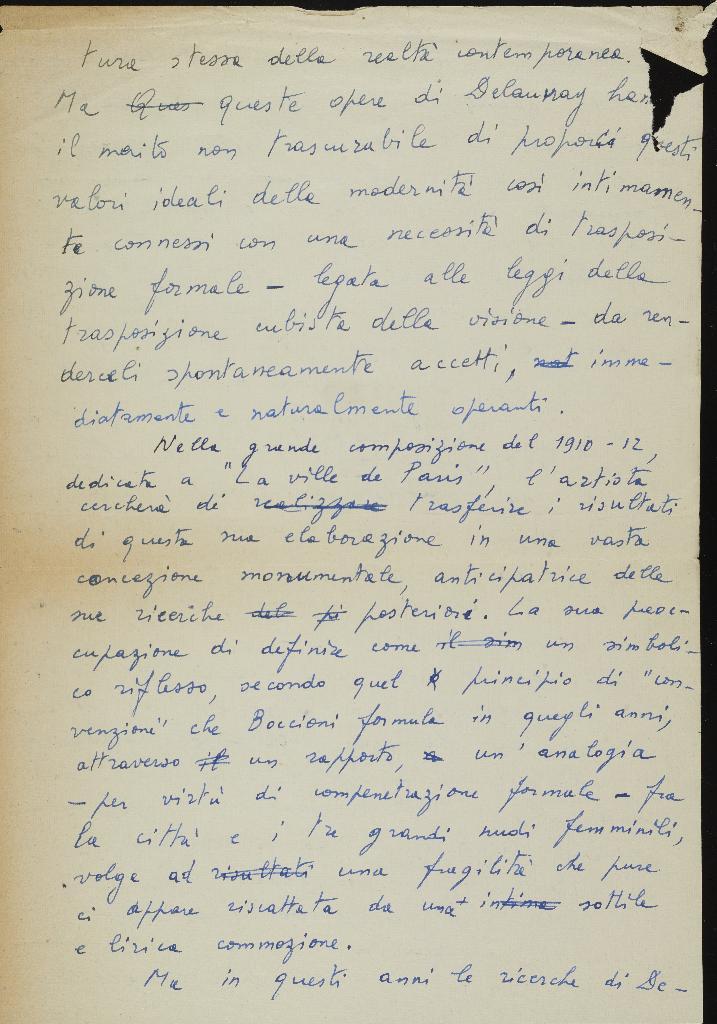 tura stessa della realtà contemporanea.
Ma Ques queste opere di Delaunay han
il merito non trascurabile di proporci questi
valori ideali della modernità così intimamen-
te connessi con una necessità di trasposi-
zione formale – legata alle leggi della
trasposizione cubista della visione – da ren-
derceli spontaneamente accetti, imme-
diatamente e naturalmente operanti.
Nella grande composizione del 1910-12,
dedicata a "La ville de Paris", l'artista
cercherà di realizzare trasferire i risultati
di questa sua elaborazione in una vasta
concezione monumentale, anticipatrice della
sue ricerche del pi posteriori. La sua preoc-
cupazione di definire come il sim un simboli-
co riflesso, secondo quel principio di "con-
venzione" che Boccioni formula in quegli anni,
attraverso il un rapporto, un'analogia
– per virtù di compenetrazione formale – fra
la città e i tre grandi nudi femminili,
volge ad risultati una fragilità che pure
ci appare riscattata da una intima sottile
e lirica commozione.
Ma in questi anni le ricerche di De-